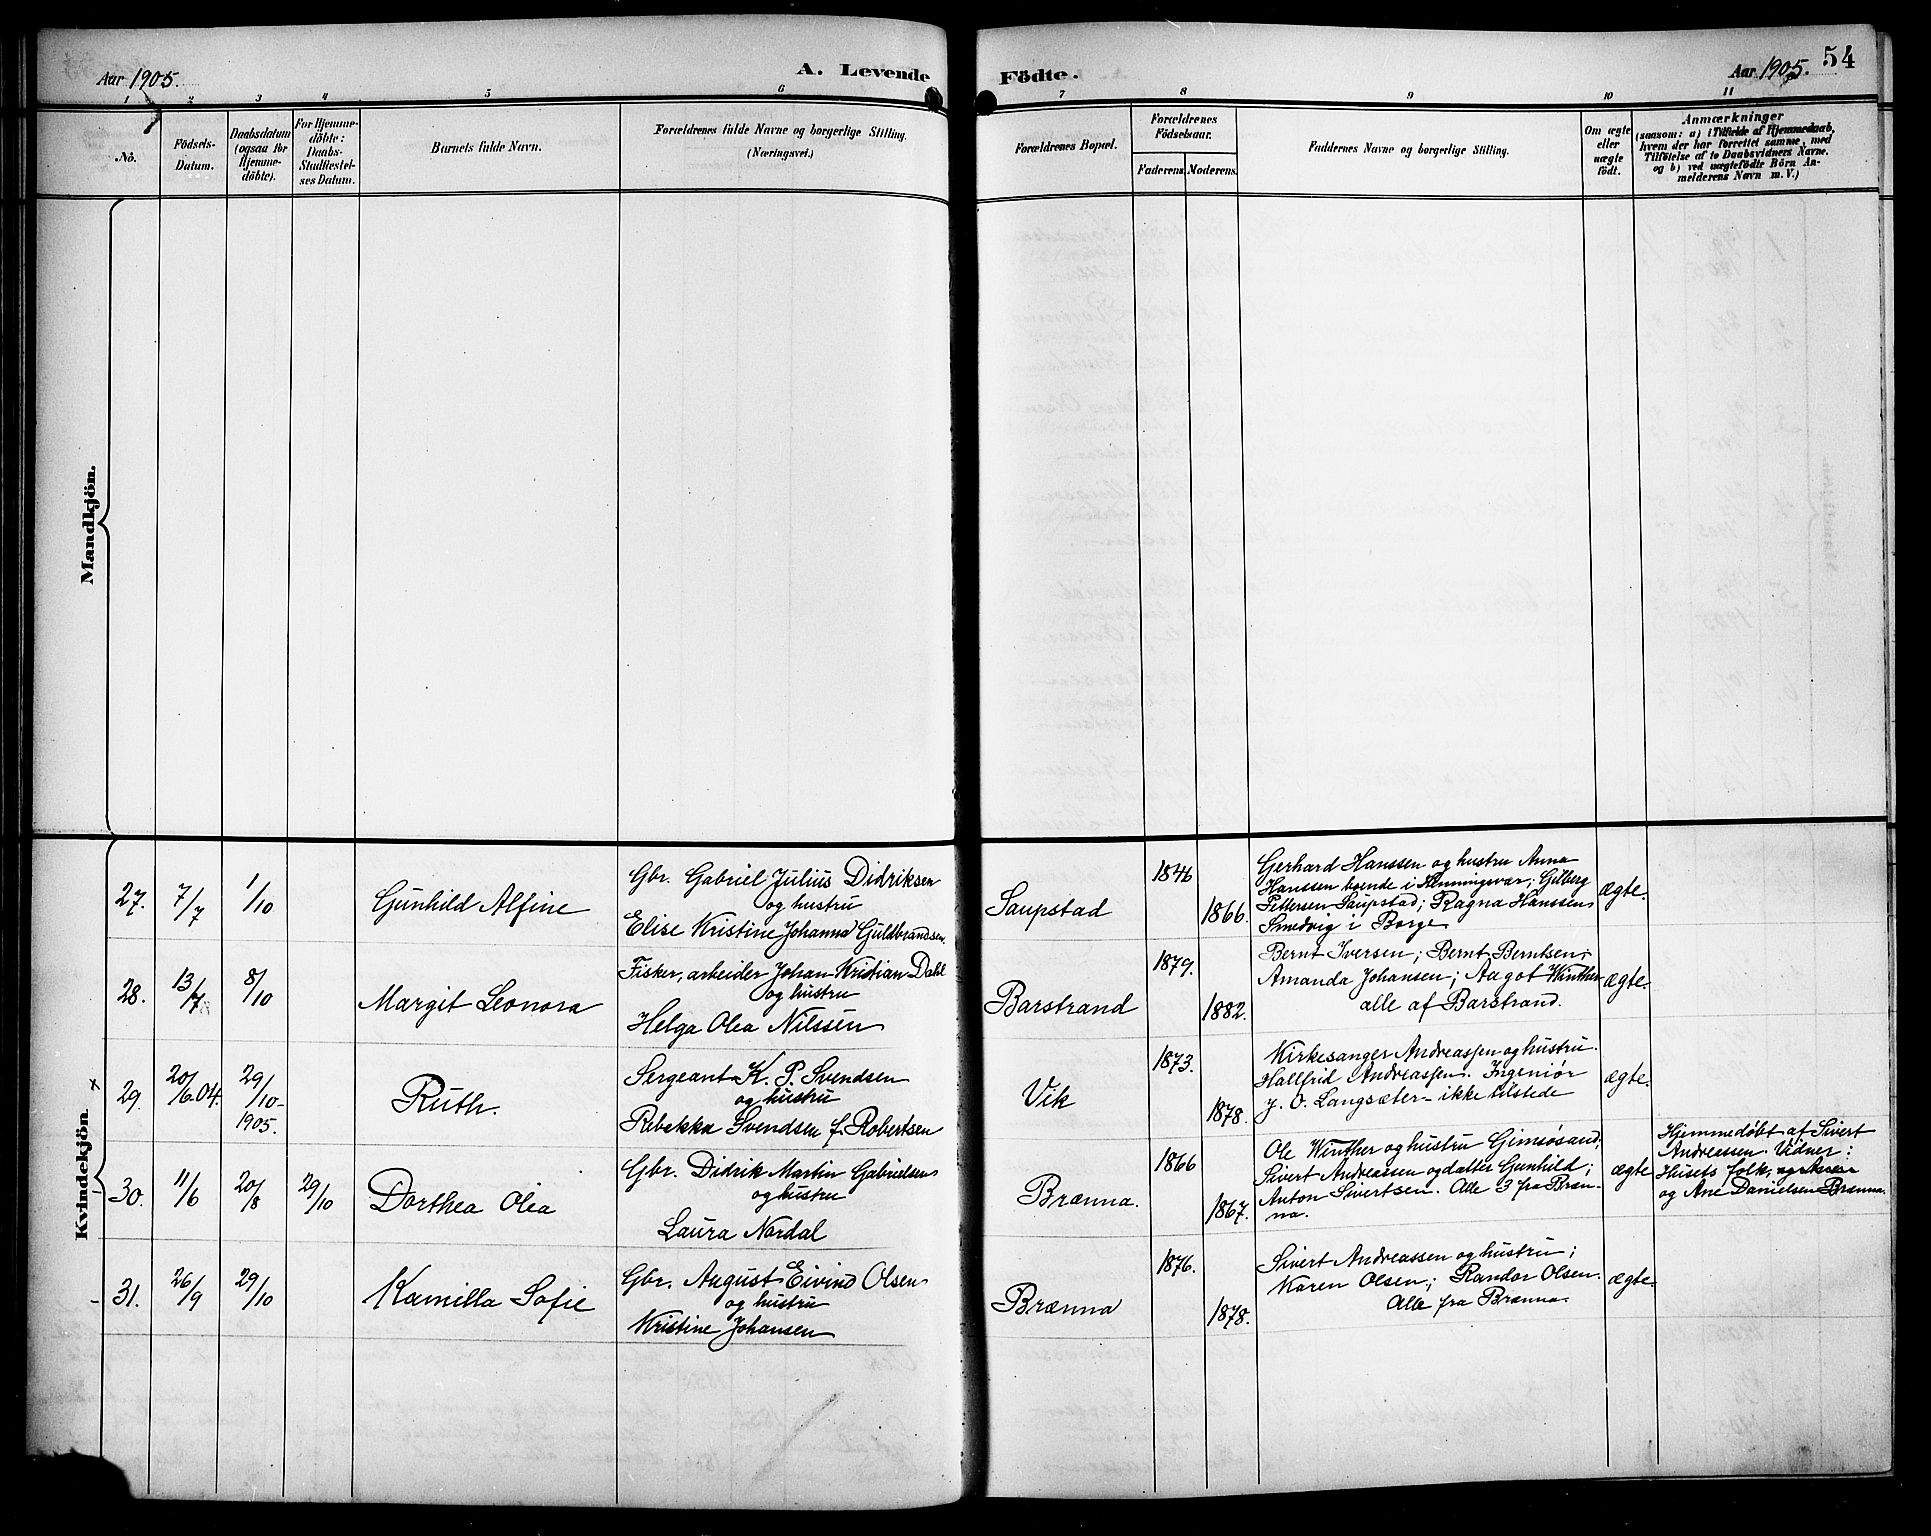 Aar 1905.
A. Levende
1 2 3 4 5 6
No.
Födsels-
Datum.
Daabsdatum
(ogsaa for
Hjemme-
döbte).
For Hjemme-
döbte:
Daabs-
Stadfæstel-
ses Datum.
Barnets fulde Navn.
Forældrenes fulde Navne og borgerlige Stilling.
(Næringsvei.)
Mandkjön.
Kvindekjön.
27. 7/7 1/10
Gunhild Alfine
Gbr. Gabriel Julius Didriksen
og hustru
Elise Kristine Johanna Guldbrandsen.
28. 13/7 8/10
Margit Leonora
Fisker, arbeider Johan Kristian Dahl
og hustru
Helga Olea Nilssen
29. 20/6 04. 29/10-
1905.
Ruth.
Sergeant K. P. Svendsen
og hustru
Rebekka Svendsen f. Robertsen
30. 11/6 20/8 29/10
Dorthea Olea
Gbr. Didrik Martin Gabrielsen
og hustru
Laura Nordal
31. 26/9 29/10
Kamilla Sofie
Gbr. August Eivind Olsen
og hustru
Kristine Johansen
Födte.
Aar 1905.
54
7 8 9 10 11
Forældrenes Bopæl.
Forældrenes
Födselsaar.
Faderens. Moderens.
Faddernes Navne og borgerlige Stilling.
Om ægte
eller
uægte
födt.
Anmærkninger
(saasom: a) i Tilfælde af Hjemmedaab,
hvem der har forrettet samme, med
Tilföielse af to Daabsvidners Navne.
og b) ved uægtefödte Börn An-
melderens Navn m. V.)
Saupstad
1846
1866.
Gerhard Hanssen og hustru Anna
Hanssen boende i Henningsvær; Gilberg
Pettersen Saupstad; Ragna Hanssen
Smedvig i Borge
ægte.
Barstrand
1879.
1882.
Bernt Iversen; Bernt Berntsen;
Amanda Johansen; Aagot Winther
alle af Barstrand.
ægte.
Vik
1873.
1878.
Kirkesanger Andreassen og hustru
Hallfrid Andreassen. Ingeniør
J. O. Langsæter - ikke tilstede
ægte.
Brænna.
1866
1867.
Ole Winther og hustru Gimsøsand;
Sivert Andreassen og datter Gunhild;
Anton Sivertsen. Alle 3 fra Bræn-
na.
ægte
Hjemmedøbt af Sivert
Andreassen. Vidner:
Husets folk,
og Ane Danielsen Brænna.
Brænna
1876.
1878.
Sivert Andreassen og hustru;
Karen Olsen; Randor Olsen.
Alle fra Brænna.
ægte